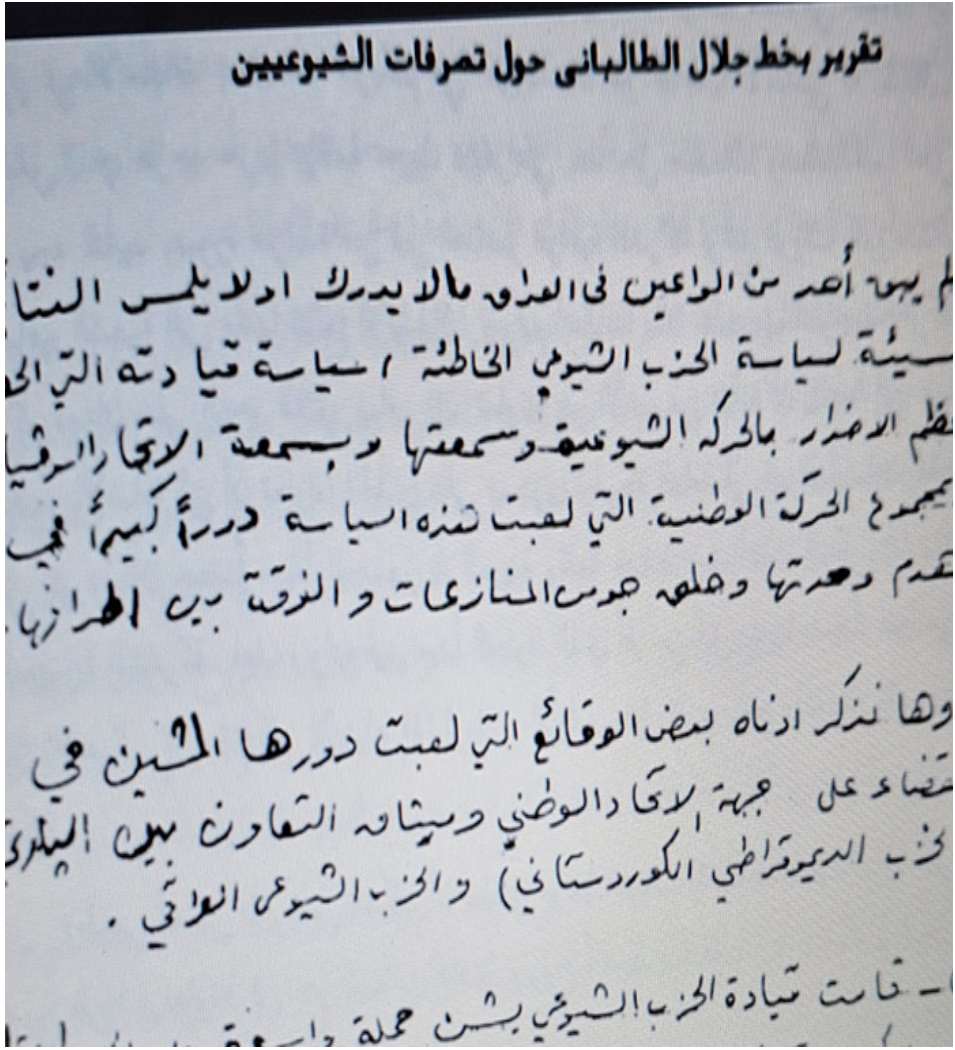 تقرير بخط جلال الطالباني حول تصرفات الشيوعيين
لم يبق أحد من الواعين في العراق مالا يدرك اولا يلمس النتا
سيئة لسياسة الحزب الشيوعي الخاطئة / سياسة قيادته التي الح
ظم الاضرار بالحركه الشيوعية وسمعتها وبسمعة الاتحاد السوفيا
بمجموع الحركة الوطنية التي لعبت هذه السياسة دوراً كبيراً في
هدم وحدتها وخلق جو من المنازعات و الفرقة بين اطرافها
وها نذكر ادناه بعض الوقائع التي لعبت دورها المشين في
قضاء على جبهة الاتحاد الوطني وميثاق التعاون بين البارتي
لحزب الديموقراطي الكوردستاني) والحزب الشيوعي العراقي .
ـ قامت قيادة الحزب الشيوعي بشن حملة واسعة